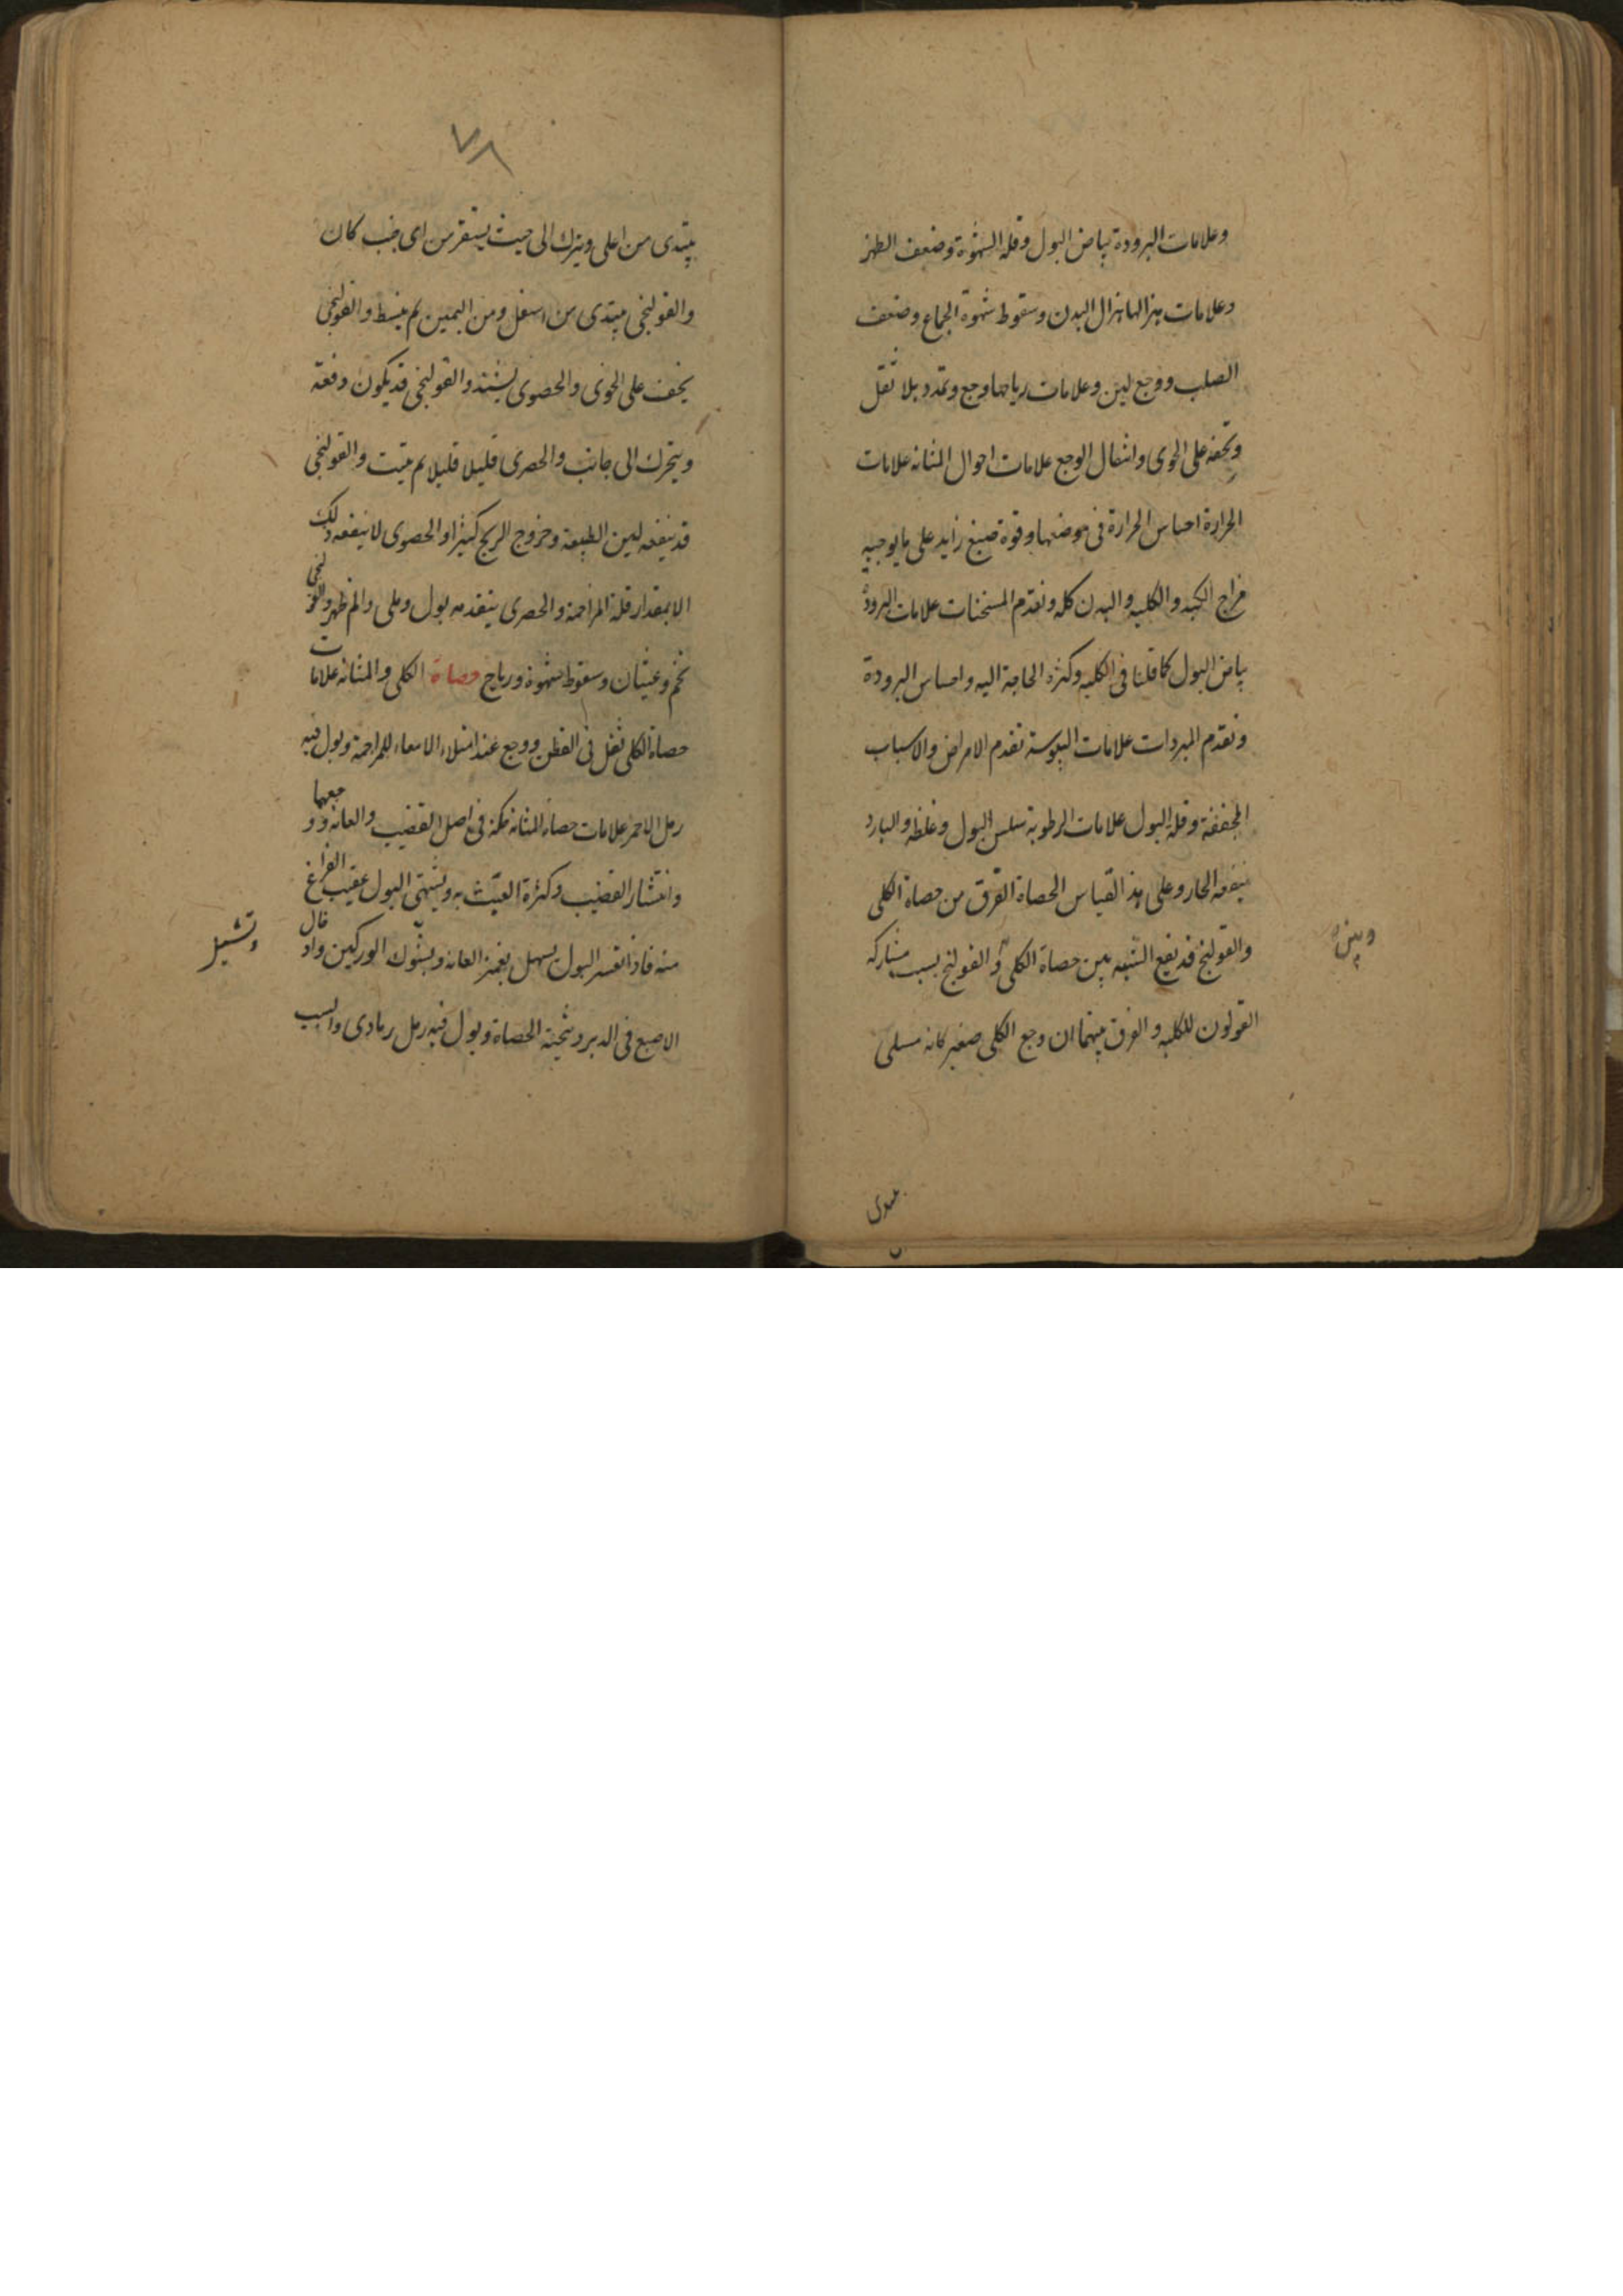 وعلامات البرودة بياض البول وقلة الشهوة وضعف الظهر
وعلامات هزالها هزال البدن وسقوط شهوة الجماع وضعف
الصلب ووجع لين وعلامات رياحها وجع وتمدد بلا ثقل
وخفة على الخوى وانتقال الوجع علامات احوال المثانه علامات
الحرارة احساس الحرارة فى موضعها وقوة صبغ زايد على ما يوجبه
مزاج الكبد والكليه والبدن كله وتقدم المسخنات علامات البرودة
بياض البول كما قلنا فى الكليه وكثرة الحاجة اليه واحساس البرودة
وتقدم المبردات علامات اليبوسة تقدم الامراض والاسباب
المجففة وقلة البول علامات الرطوبة سلس البول وغلظه والبارد
ينفعه الحار وعلى هذا القياس الحصاة الفرق من حصاة الكلى
والقولنج قد يقع الشبه بين حصاة الكلى و القولنج بسبب مشاركه
وبين
القولون للكليه والفرق بينهما ان وجع الكلى صغير كانه مسلى
٧٨
يبتدى من اعلى وينزل الى حيث يستقر من اى جنب كان
والقولنجى يبتدى من اسفل ومن اليمين ثم ينبسط والقولنجى
يخف على الخوى والحصوى يشتد والقولنجى قد يكون دفعة
ويتحرك الى جانب والحصرى قليلا قليلا ثم يثبت والقولنجى
قد ينفعه لين الطبيعة وخروج الريح كثيرا والحصوى لا ينفعه ذلك
الا بمقدار قلة المزاحمة والحصرى يتقدمه بول رملى والم ظهر والقولنجى
تخم وغثيان وسقوط شهوة ورياح حصاة الكلى والمثانه علامات
حصاة الكلى ثقل فى القطن ووجع عند امتلاء الامعاء للمزاحمة وبول فيه
رمل الاحمر علامات حصاة المثانه حكة فى اصل القضيب والعانه ووجعهما
وانتشار القضيب وكثرة العبث به ويشتهى البول عقيب الفراغ
منه فاذا تعسر البول يسهل بغمز العانه وبشوك الوركين وادخال
وتشيل
الاصبع فى الدبر وتنحية الحصاة وبول فيه رمل رمادى والسبب